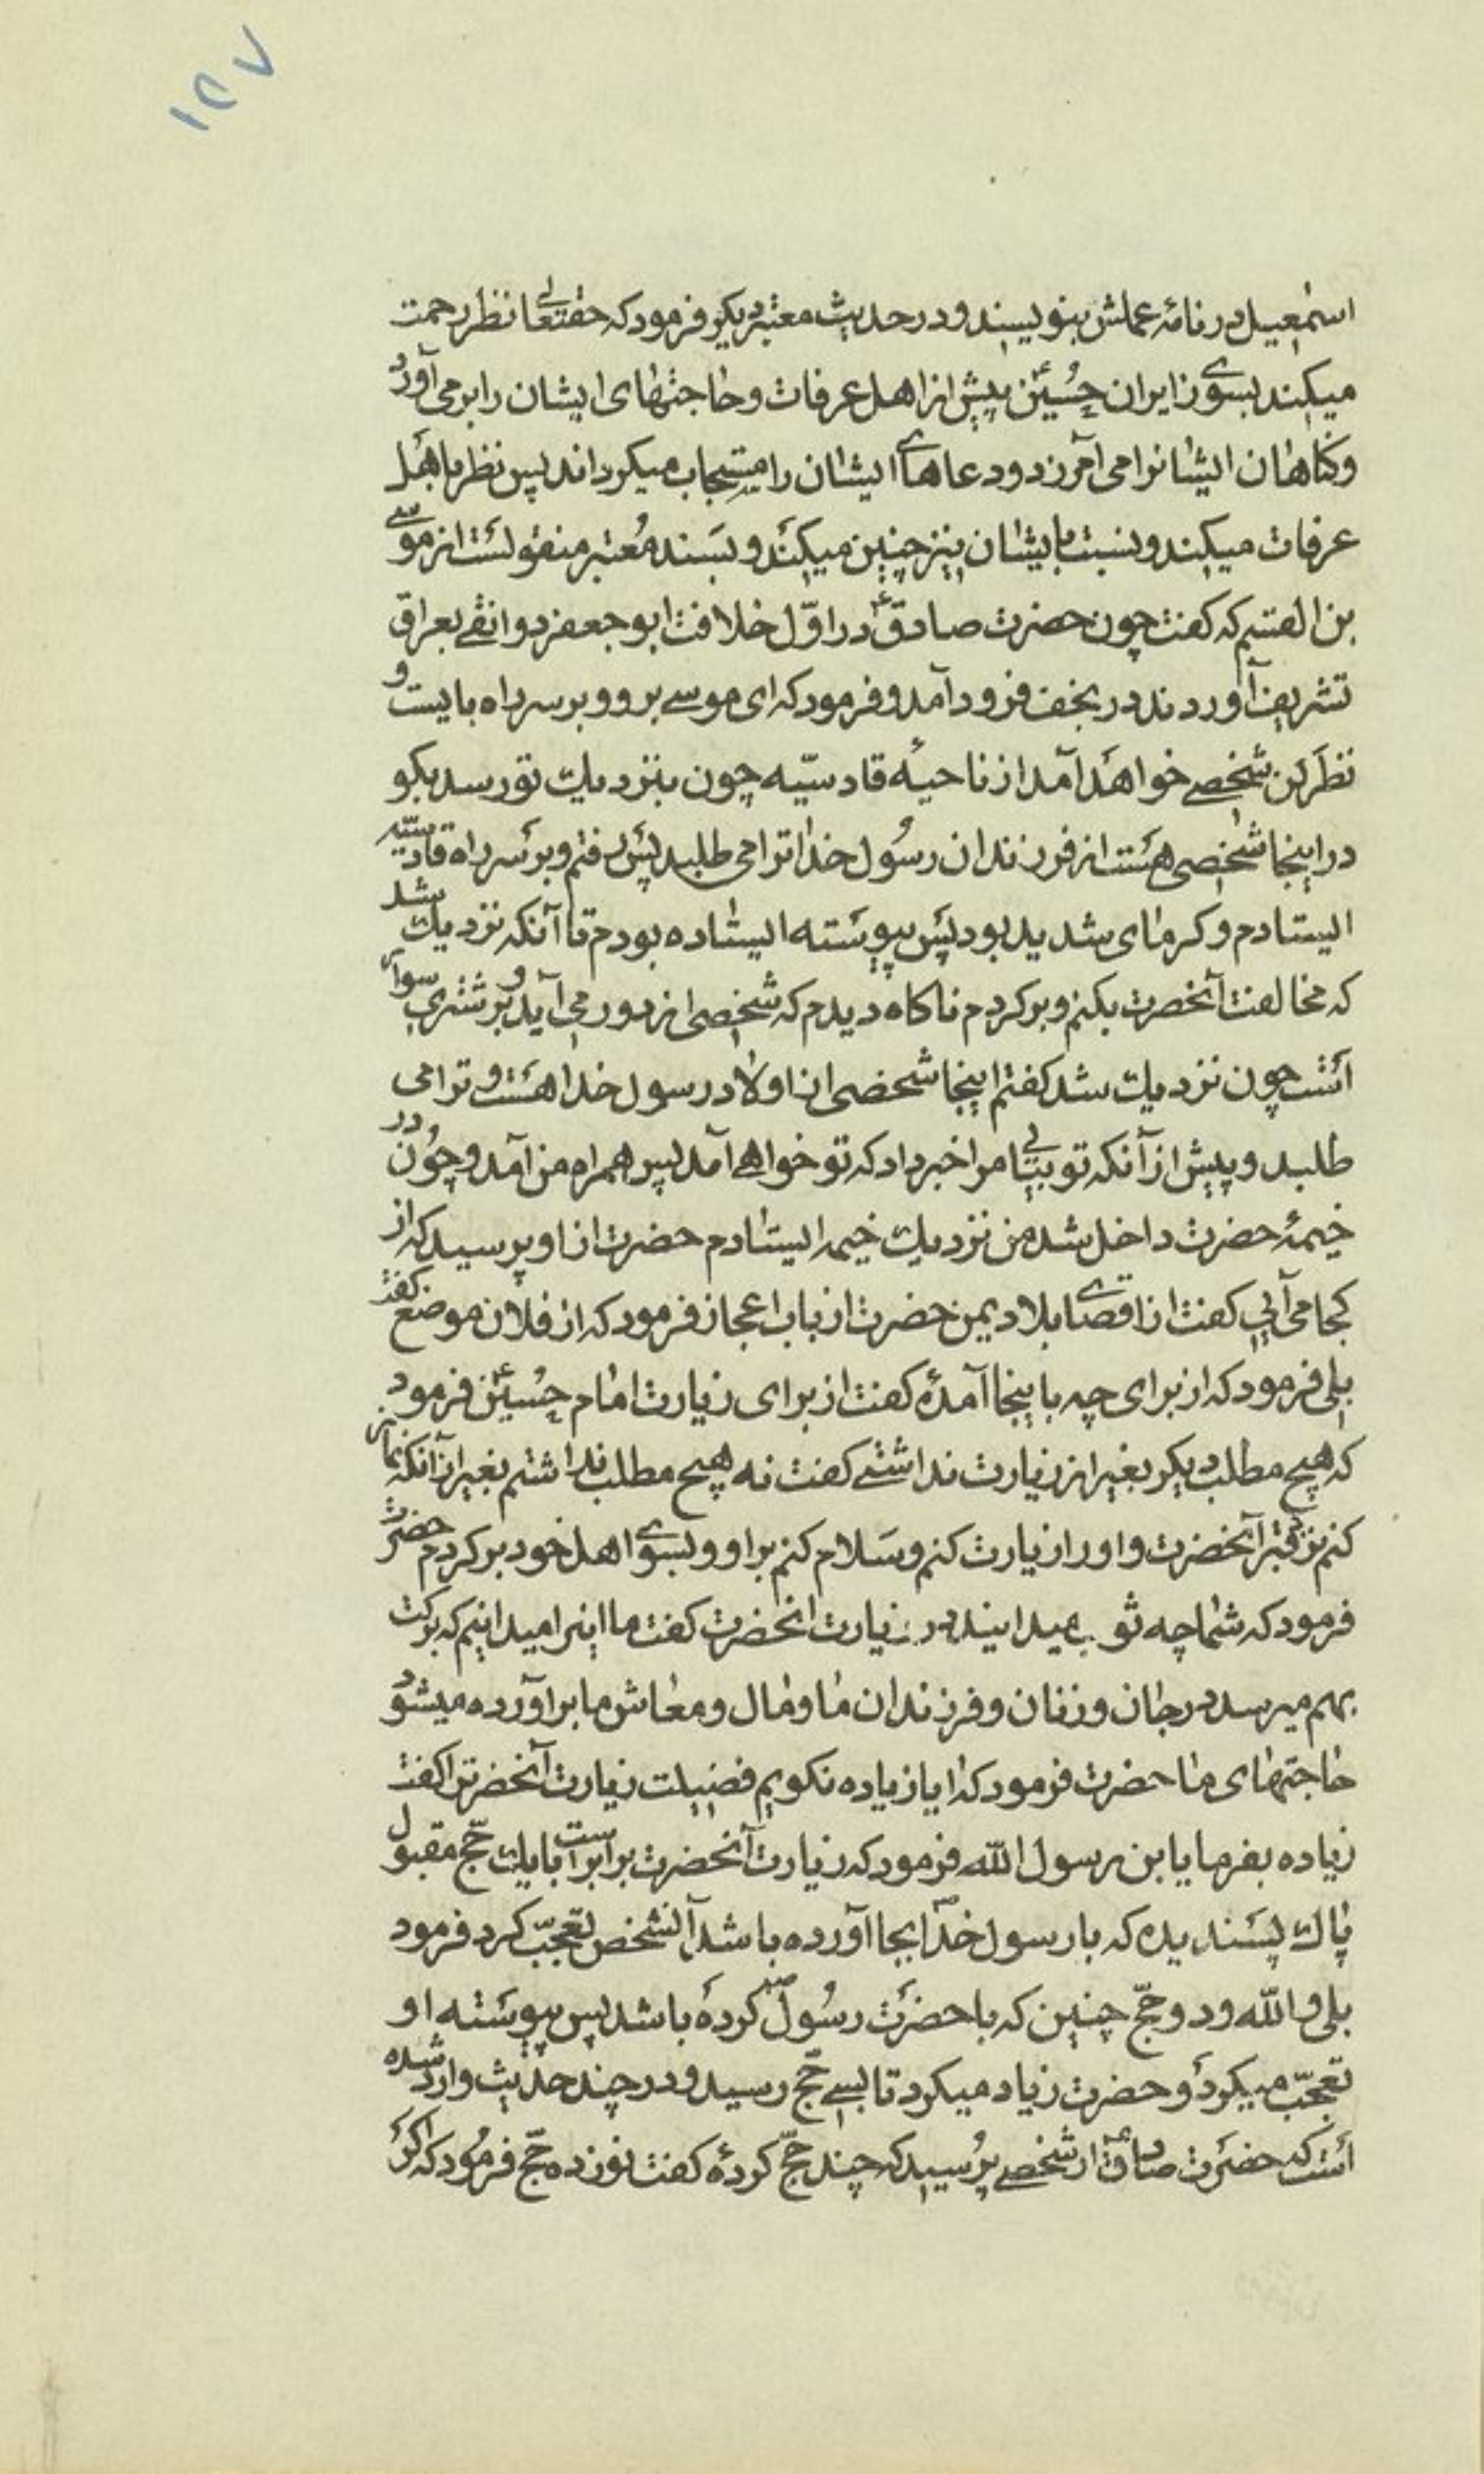 ۱۲۷
اسمعیل در نامهٔ عملش بنویسند و در حدیث معتبر دیکر فرمود که حقتعالی نظر رحمت
میکند بسوی زایران حسین ع پیش از اهل عرفات و حاجتهای ایشان را بر می آورد
و کناهان ایشانرا می آمرزد و دعاهای ایشان را مستجاب میکرداند پس نظر باهل
عرفات میکند و نسبت بایشان نیز چنین میکند و بسند معتبر منقولست از موسی
بن القسیم که کفت چون حضرت صادق ع در اوّل خلافت ابو جعفر دوانقی بعراق
تشریف آوردند در نجف فرود آمد و فرمود که ای موسی برو و بر سر راه بایست و
نظر کن شخصی خواهد آمد از ناحیهٔ قادسیّه چون بنزدیك تو رسد بکو
در اینجا شخصی هست از فرزندان رسول خدا ترا می طلبد پس رفتم و بر سر راه قادسیّه
ایستادم و کرمای شدید بود پس پیوسته ایستاده بودم تا آنکه نزدیك شد
که مخالفت آنحضرت بکنم و برکردم ناکاه دیدم که شخصی از دور می آید و بر شتری سوار
است چون نزدیك شد کفتم اینجا شخصی از اولاد رسول خدا هست و ترا می
طلبد و پیش از آنکه تو بیایی مرا خبر داد که تو خواهی آمد پس همراه من آمد و چون در
خیمهٔ حضرت داخل شد من نزدیك خیمه ایستادم حضرت از او پرسید که از
کجا می آیی کفت از اقصای بلاد یمن حضرت از باب اعجاز فرمود که از فلان موضع کفت
بلی فرمود که از برای چه باینجا آمدهٔ کفت از برای زیارت امام حسین ع فرمود
که هیچ مطلب دیکر بغیر از زیارت نداشتی کفت نه هیچ مطلب نداشتم بغیر از آنکه نماز
کنم نزد قبر آنحضرت و او را زیارت کنم و سلام کنم بر او و بسوی اهل خود برکردم حضرت
فرمود که شما چه ثواب میدانید در زیارت انحضرت کفت ما اینرا میدانیم که برکت
بهم میرسد در جان و زنان و فرزندان ما و مال و معاش ما و برآورده میشود
حاجتهای ما حضرت فرمود که ایا زیاده نکویم فضیلت زیارت آنحضرت را کفت
زیاده بفرما یابن رسول الله فرمود که زیارت آنحضرت برابر است با یك حجّ مقبول
پاك پسندیده که با رسول خدا ص بجا آورده باشد آنشخص تعجّب کرد فرمود
بلی والله و دو حجّ چنین که با حضرت رسول ص کرده باشد پس پیوسته او
تعجّب میکرد و حضرت زیاد میکرد تا بسی حجّ رسید و در چند حدیث وارد شده
است که حضرت صادق ع از شخصی پرسید که چند حجّ کردهٔ کفت نوزده حجّ فرمود که اکر